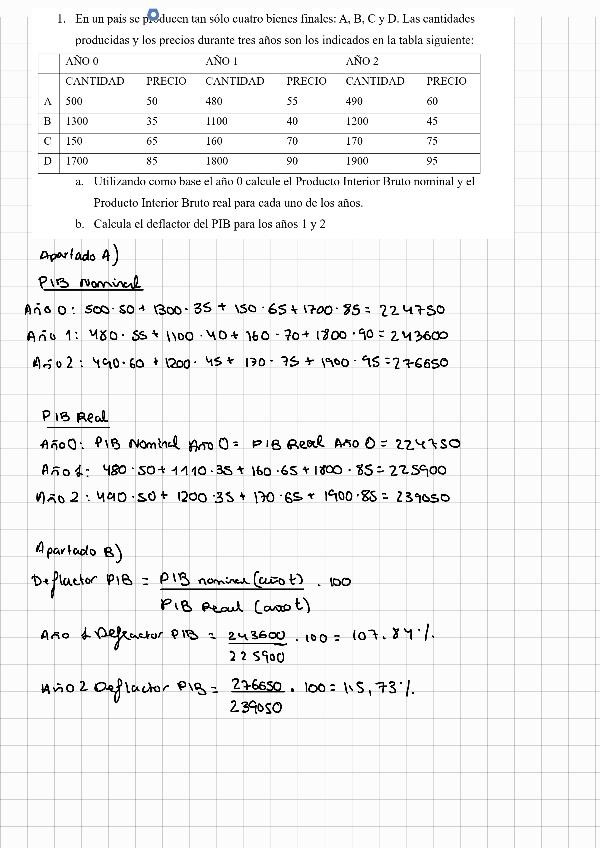 1. En un país se producen tan sólo cuatro bienes finales: A, B, C y D. Las cantidades
producidas y los precios durante tres años son los indicados en la tabla siguiente:
AÑO 0 AÑO 1 AÑO 2
CANTIDAD PRECIO CANTIDAD PRECIO CANTIDAD PRECIO
A 500 50 480 55 490 60
B 1300 35 1100 40 1200 45
C 150 65 160 70 170 75
D 1700 85 1800 90 1900 95
a. Utilizando como base el año 0 calcule el Producto Interior Bruto nominal y el
Producto Interior Bruto real para cada uno de los años.
b. Calcula el deflactor del PIB para los años 1 y 2
Apartado A)
PIB Nominal
Año 0: 500·50+ 1300·35 + 150·65+1700·85= 224750
Año 1: 480·55+1100·40+160·70+1800·90=243600
Año 2: 490·60+1200·45+170·75+1900·95=276650
PIB Real
Año 0: PIB Nominal Año 0= PIB Real Año 0=224750
Año 1: 480·50+1110·35+160·65+1800·85=225900
Año 2: 490·50+1200·35+170·65+1900·85=239050
Apartado B)
Deflactor PIB = PIB nominal (año t) · 100
PIB Real (año t)
Año 1 Deflactor PIB = 243600 · 100 = 107.84%
225900
Año 2 Deflactor PIB = 276650 · 100= 115,73%
239050